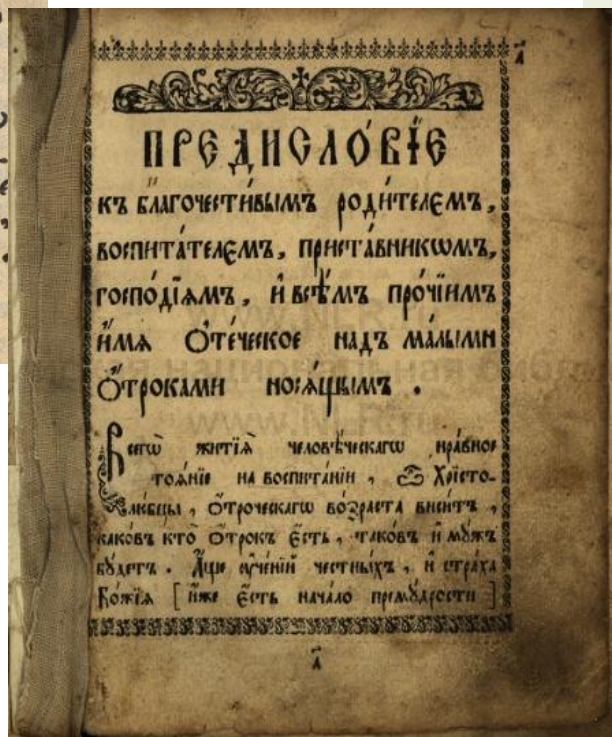 а҃
ПРЕДИСЛО́ВЇЕ
къ благочести́вымъ роди́телємъ,
воспита́телємъ, приста́вникѡмъ,
господі́ямъ, и҆ всѣ̑мъ про́чіимъ
и҆́мѧ ѻ҆те́ческое надъ ма́лыми
ѻ҆́троками носѧ́щымъ .
Всегѡ̀ житїѧ̀ человѣ́ческагѡ нра́вное
стоѧ́нїе на воспита́нїи , ѽ Хрїсто-
любцы , ѻ҆́троческагѡ во́зраста виси́тъ ,
како́въ кто̀ ѻ҆́трокъ є҆́сть , тако́въ и҆ мꙋ́жъ
бꙋ́детъ . А҆́ще ᲂу҆че́нїй че́стныхъ , и҆ стра́ха
Бо́жїѧ [ и҆́же є҆́сть нача́ло премꙋ́дрости ]
а҃
www.NLR.ru